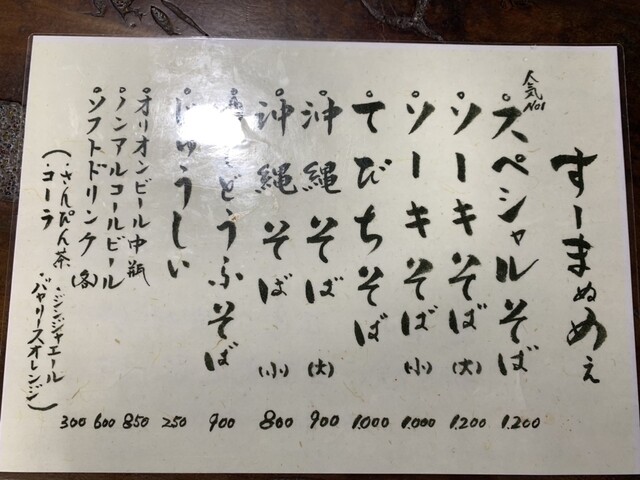 すーまぬめぇ
人気No1
スペシャルそば 1.200
ソーキそば(大) 1.200
ソーキそば(小) 1.000
てびちそば 1.000
沖縄そば(大) 900
沖縄そば(小) 800
どうふそば 900
じゅうしい 250
オリオンビール中瓶 850
ノンアルコールビール 600
ソフトドリンク(各) 300
(・さんぴん茶 ・ジンジャエール
・コーラ ・バヤリースオレンジ)